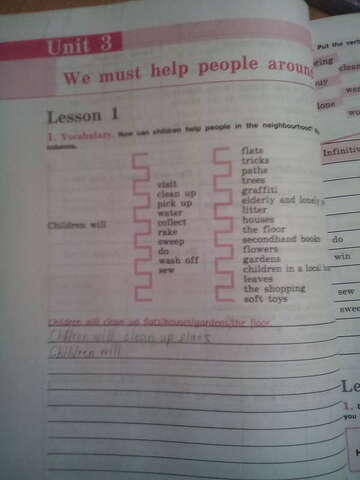 Unit 3
We must help people aroun
Lesson 1
1. Vocabulary. How can children help people in the neighbourhood?
columns.
Children will
visit
clean up
pick up
water
collect
rake
sweep
do
wash off
sew
flats
tricks
paths
trees
graffiti
elderly and lonely
litter
houses
the floor
secondhand books
flowers
gardens
children in a local
leaves
the shopping
soft toys
Children will clean up flats/houses/gardens/the floor.
Children will clean up
Children will
Put the verb
clean
lone
Infinitiv
do
win
sew
swee
Le
1.
you